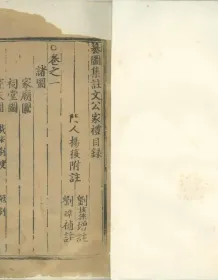 纂圖集註文公家禮目錄
門人楊復附註
劉垓孫增註
劉璋補註
卷之一
諸圖
家廟圖
祠堂圖